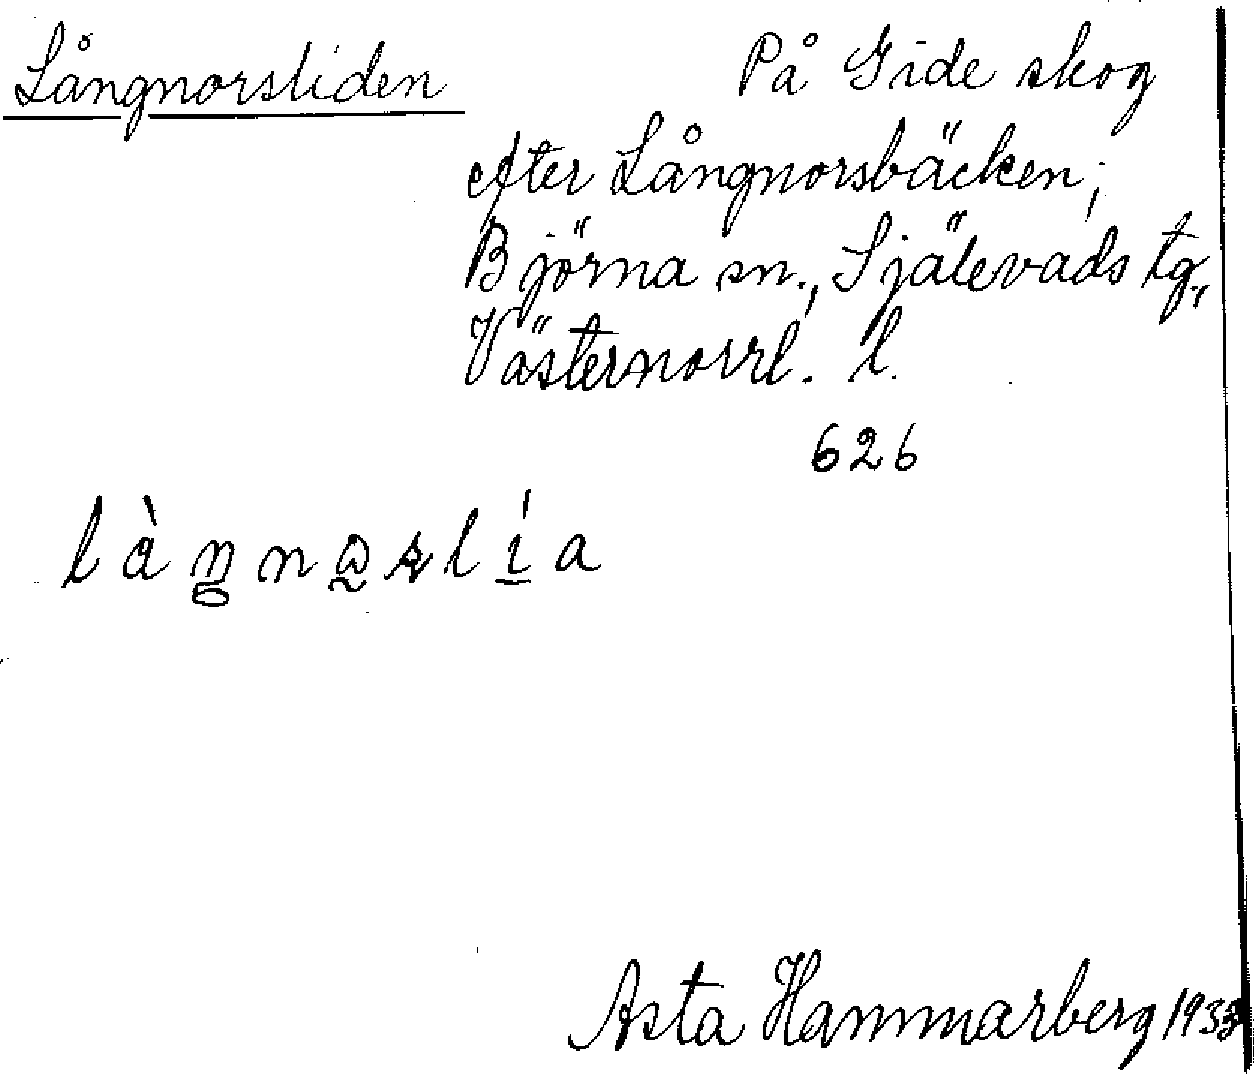 Långnorsliden
På Gide skog
efter Långnorsbäcken;
Björna sn., Själevads tg.,
Västernorrl. l.
626
Asta Hammarberg 1933